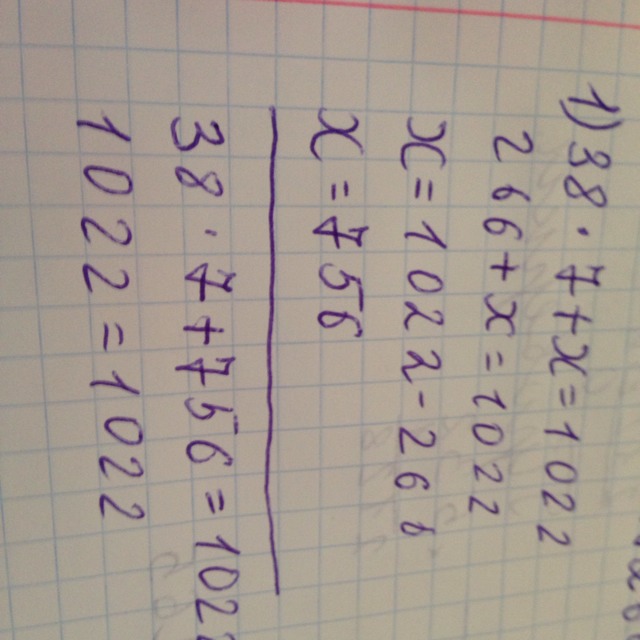 1) 38 · 7 + x = 1022
266 + x = 1022
x = 1022 - 266
x = 756
38 · 7 + 756 = 1022
1022 = 1022